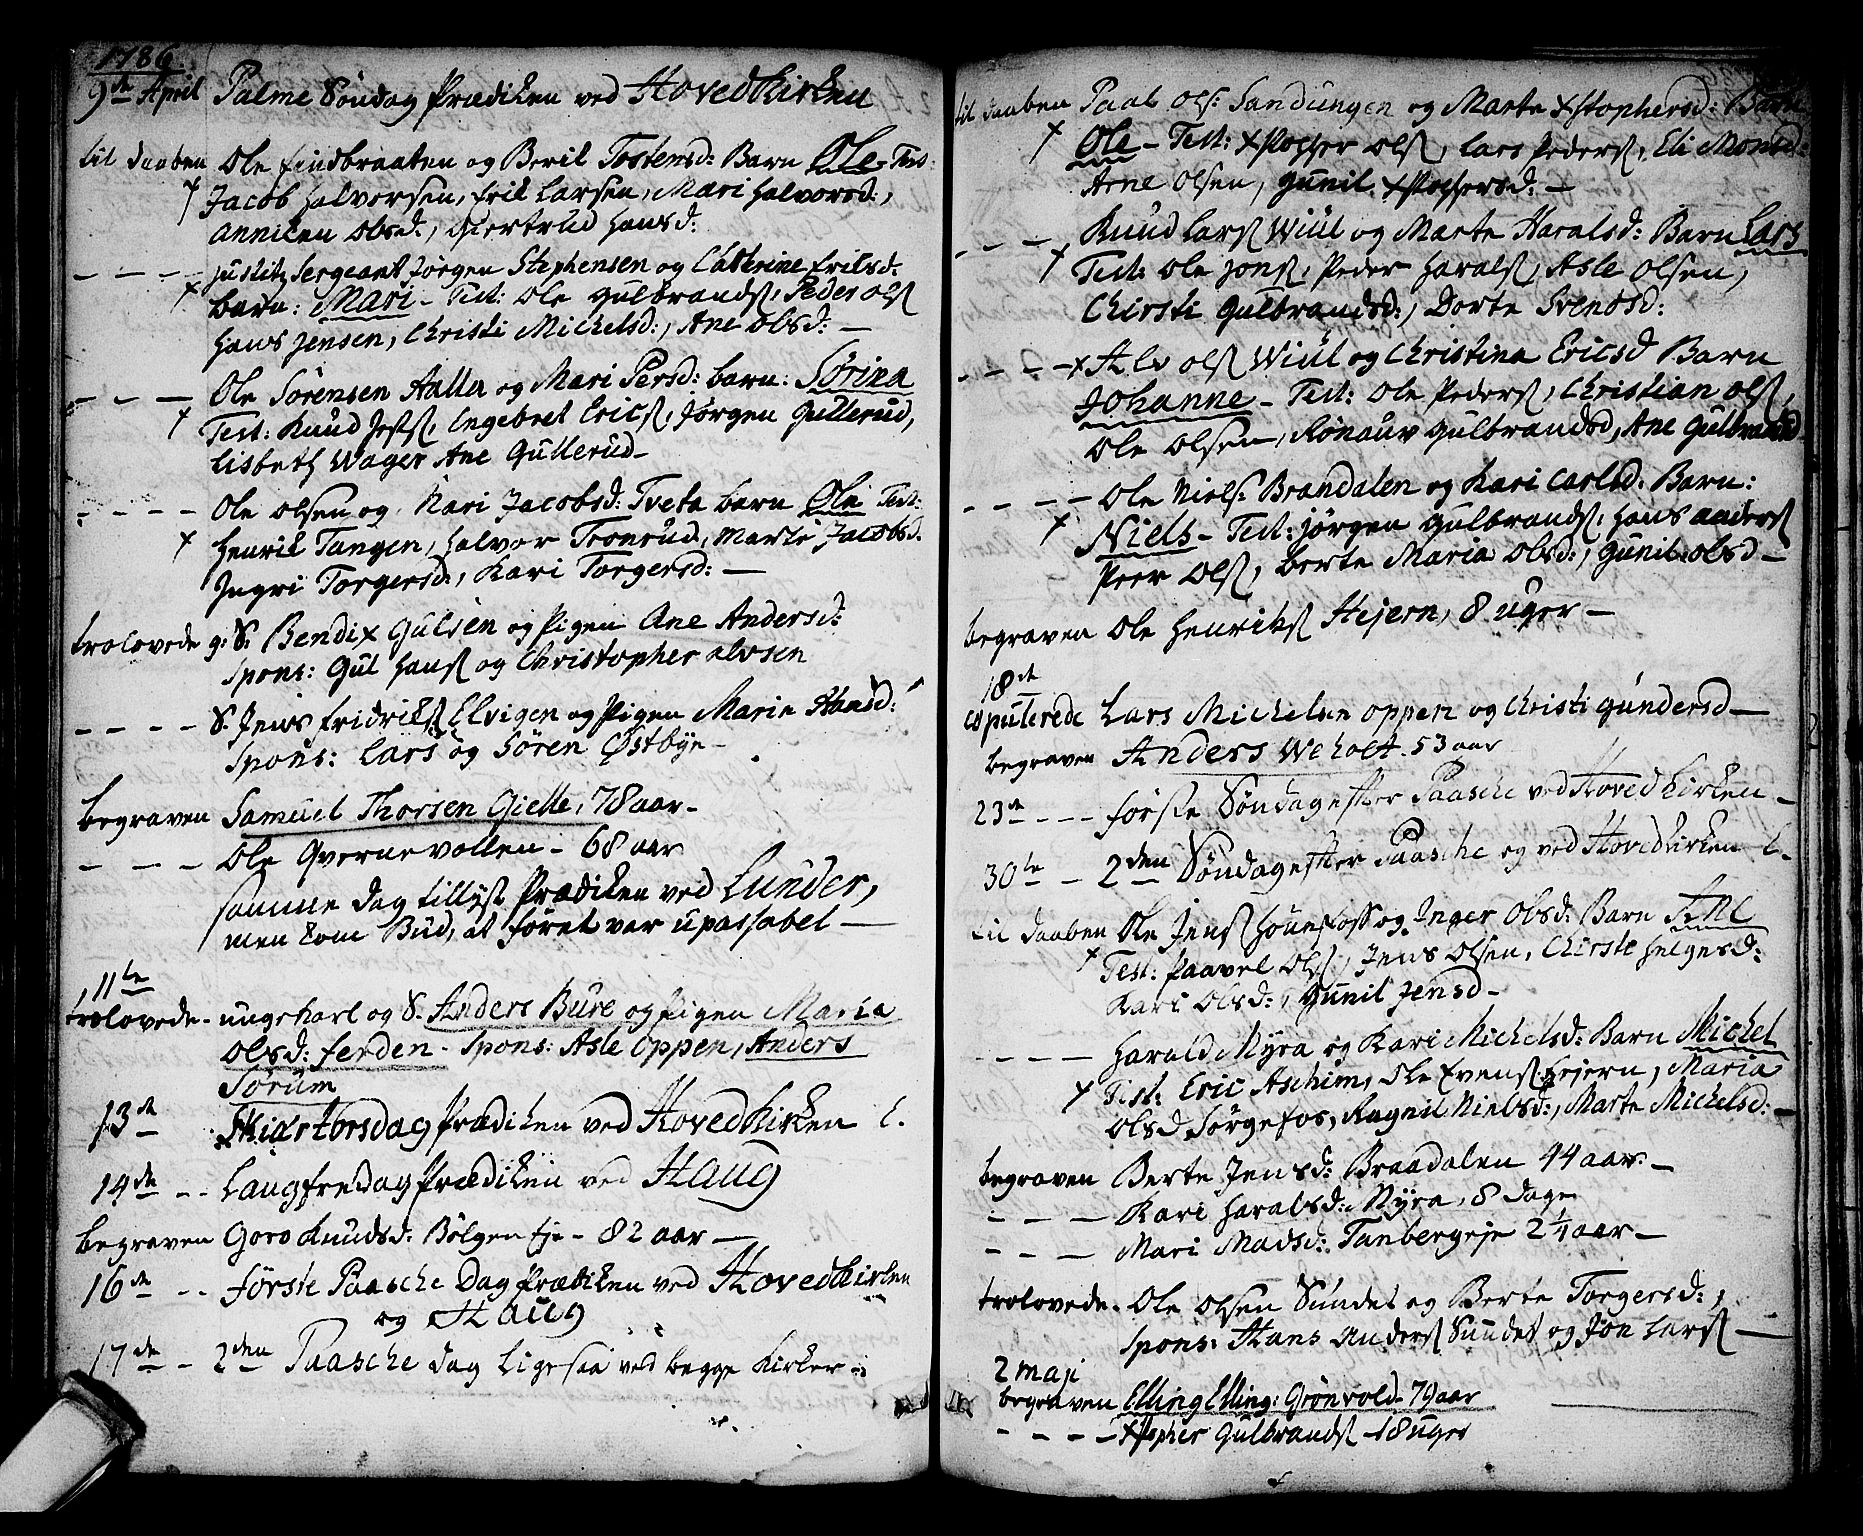 1786.
9de April Palme Söndag Prædiken ved HovedKirken
til daaben Ole findbraaten og Beril Tostensd: Barn Ole - Test:
Jacob Halvorsen, Erik Larsen, Mari Halvorsd:,
Anniken Olsd:, Giertrud Hansd:
- - - - Justitz Sergeant Jörgen Stephensen og Catterine Eriksd:
barn: Mari - Test: Ole Gulbrands, Peder Ols
Hans Jensen, Christi Michelsd:, Ane Olsd: -
- - - Ole Sörensen Aalla og Mari Persd: barn: Sörina
Test: Knud Jess, Engebret Erics, Jörgen Gullerud,
Lisbeth Wager Ane Gullerud -
- - - - Ole Olsen og Kari Jacobsd: Tveta barn Ole Test:
Henrik Tangen, Halvor Tronrud, Marte Jacobsd.
Ingri Torgersd:, Kari Torgersd: -
trolovede g: S. Bendix Gulsen og Pigen Ane Andersd:
Spons: Gul Hans og Christopher Alvsen
- - - - S. Jens Fridriks Elvigen og Pigen Marie Hansd:
Spons: Lars og Sören Østbye -
begraven Samuel Thorsen Gielle, 78 aar -
- - - Ole Qvernevollen - 68 aar
samme dag tillyst Prædiken ved Lunder,
men kom Bud, at föret var upassabel -
11te
trolovede - ungekarl og S. Anders Bure og Pigen Maria
Olsd: Ferden - Spons: Asle Oppen, Anders
Sörum
13de Skiertorsdag Prædiken ved HovedKirken C.
14de - - Langfredag Prædiken ved Haug
begraven Goro Knudsd: Bölgen Eje - 82 aar -
16de - - förste Paasche Dag Prædiken ved HovedKirken
og Haug
17de - 2den Paasche dag Ligesaa ved begge Kirker -
til daaben Paal Ols: Sandungen og Marte Xstophersd: Barn
Ole - Test: Xstopher Ols, Lars Peders, Eli Monsd:
Arne Olsen, Gunil Xstophersd: -
- - - Knud Lars Wiul og Marte Haralsd: Barn Lars
Test: Ole Jons, Peder Harals, Asle Olsen,
Chirsti Gulbrandsd:, Dorte Svendsd:
- - - - Alv Ols Wiul og Christina Ericsd Barn
Johanne - Test: Ole Peders, Christian Ols,
Ole Olsen, Rönauv Gulbrandsd, Ane Gulbrandsd
- - - - Ole Niels: Brandalen og Kari Carlsd. Barn:
Niels - Test: Jörgen Gulbrands, Hans Anders
Peer Ols, Berte Maria Olsd:, Gunil Olsd -
begraven Ole Henriks Hejern, 8 uger -
18de
copulerede Lars Michelsen Oppen og Christi Gundersd -
begraven Anders Weholt. 53 aar
23de - - - förste Söndag efter Paasche ved HovedKirken -
30te - 2den Söndag efter Paasche og ved Hovedkirken C.
til daaben Ole Jens Hönefoss og Inger Olsd: Barn Ane
Test: Paavel Ols, Jens Olsen, Chirste Helgesd:
Kari Olsd:, Gunil Jensd -
- - - - Harald Myra og Kari Michelsd: Barn Michel
Test: Eric Aschim, Ole Evens Hejern, Maria
Olsd Sörgefos, Ragnil Nielsd:, Marte Michelsd: -
begraven Berte Jensd: Braadalen 44 aar. -
- - - Kari Haralsd: Myra, 8 dage
- - - Mari Madsd: Tanbergeje 2 1/4 aar -
trolovede. Ole Olsen Sundet og Berte Torgersd:,
Spons: Hans Anders Sundet og Jon Lars -
2 maji
begraven Elling Elling: Grönvold - 79 aar
- - - - Xstopher Gulbrands - 18 uger